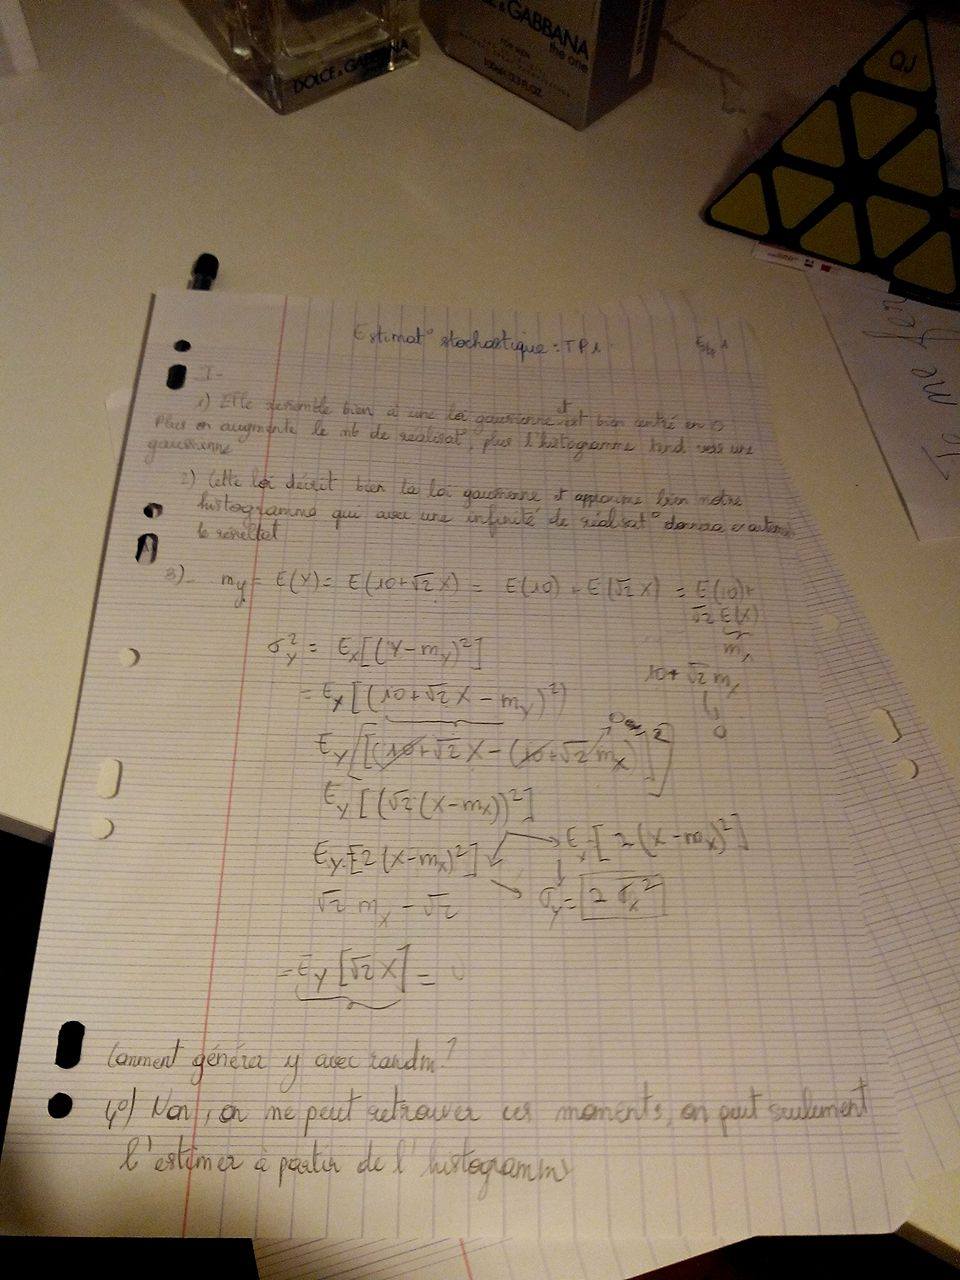 DOLCE & GABBANA
& GABBANA
the one
FOR MEN
QJ
me
Estimat° stochastique : TP1
I-
1) Elle ressemble bien à une loi gaussienne et est bien centré en 0
Plus on augmente le nb de réalisat°, plus l'histogramme tend vers une
gaussienne
2) Cette loi décrit bien la loi gaussienne et approxime bien notre
histogramme qui avec une infinité de réalisat° donnera exactement
le résultat
3)- my = E(Y) = E(10+√2X) = E(10) + E(√2 X) = E(10)+
√2 E(X)
mx
10+√2 mx
0
σ²Y = Ex[(Y-mY)²]
= Ex[(10+√2X - mY)²)
EY[[(10+√2X - (10+√2 mx)]²]
EY[(√2(X-mx))²]
EY[2(X-mx)²]
Ex[2(X-mx)²]
σY = 2σx²
√2 mx - √2
= EY[√2 X] =
Comment générer y avec randn ?
4°) Non, on ne peut retrouver ces moments, on peut seulement
l'estimer à partir de l'histogramme